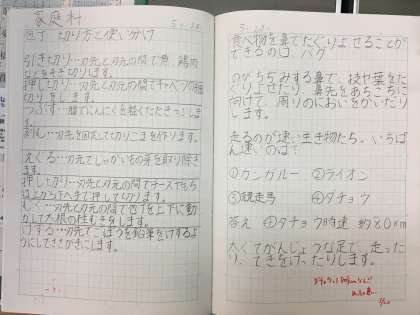 家庭科
包丁 切り方と使い分け
引き切り…刃先と刃元の間で魚、鶏肉
などをそぎ切りします。
押し切り…刃先と刃元の間でキャベツの
切りをします。
つぶす…腹でにんにくを軽くたたきつぶしま
す。
刻む…刃先を固定して切りごまを作ります。
えぐる…刃元でじゃがいもの芽を取り除き
ます。
押し切り…刃先と刃元の間でチーズやもち
は上から下へ手で押して切ります。
むく…刃先と刃元の間で包丁を上下に動
かして大根の桂むきをします。
けずる…刃先でごぼうを鉛筆をけずるよ
うにしてささがきにします。
食べ物を鼻でたぐりよせることが
できるのは、バク
のびちぢみする鼻で、枝や葉をた
ぐりよせたり 鼻先をあちこちに
向けて、周りのにおいをかいだり
します。
走るのが速い生き物たち。いちば
ん速いのは?
①カンガルー ②ライオン
③競走馬 ④ダチョウ
答え ④ダチョウ 時速 約80km
太くてがんじょうな足で、走った
り、てきをけったりします。